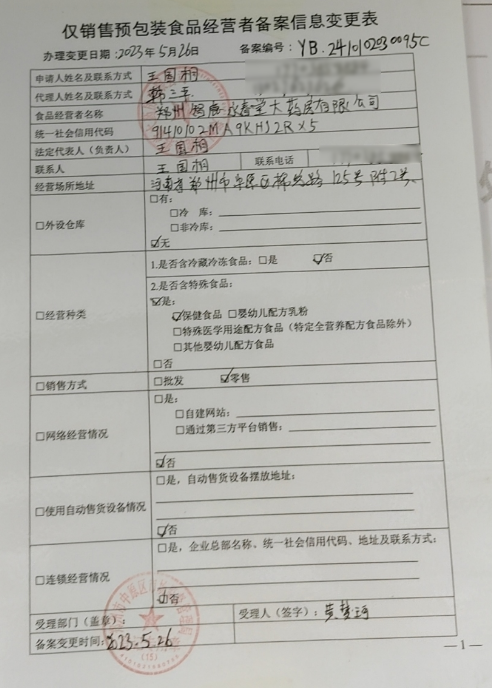 仅销售预包装食品经营者备案信息变更表
办理变更日期:2023年5月26日 备案编号:YB.2410102030095C
申请人姓名及联系方式 王国相
代理人姓名及联系方式 韩三平
食品经营者名称 郑州 康永春堂大药房有限公司
统一社会信用代码 91410102MA9KHJ2RX5
法定代表人(负责人) 王国相
联系人 王国相 联系电话
经营场所地址 河南省郑州市中原区 路125号附2号
□外设仓库 □有:
□冷 库:
□非冷库:
☑无
□经营种类 1.是否含冷藏冷冻食品:□是 ☑否
2.是否含特殊食品:
☑是:
☑保健食品 □婴幼儿配方乳粉
□特殊医学用途配方食品(特定全营养配方食品除外)
□其他婴幼儿配方食品
□否
□销售方式 □批发 ☑零售
□网络经营情况 □是:
□自建网站:
□通过第三方平台销售:
☑否
□使用自动售货设备情况 □是,自动售货设备摆放地址:
☑否
□连锁经营情况 □是,企业总部名称、统一社会信用代码、地址及联系方式:
☑否
受理部门(盖章): 受理人(签字):黄梦珂
备案变更时间:2023.5.26
—1—